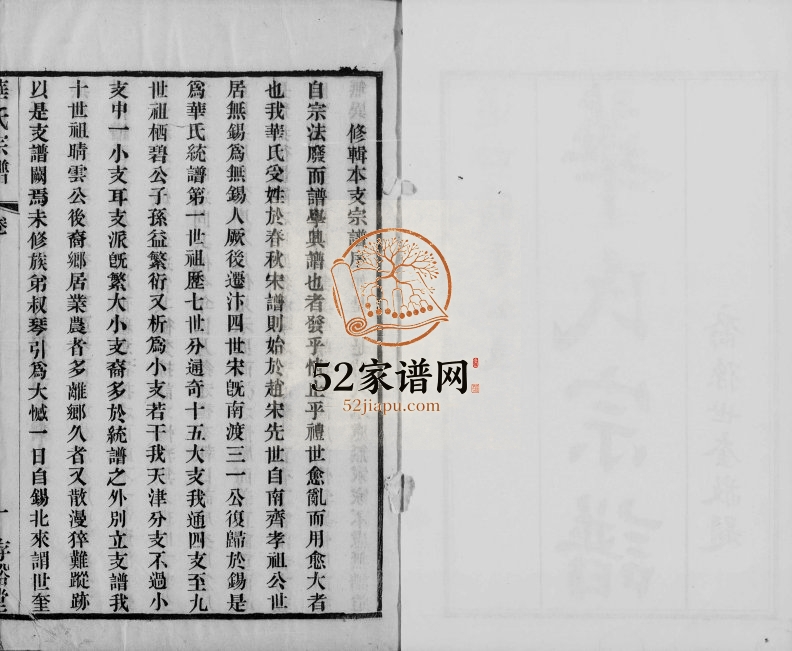 修輯本支宗譜序
自宗法廢而譜學興譜也者發乎情止乎禮世愈亂而用愈大者
也我華氏受姓於春秋宋譜則始於趙宋先世自南齊孝祖公世
居無錫爲無錫人厥後遷汴四世宋旣南渡三一公復歸於錫是
爲華氏統譜第一世祖歷七世分通奇十五大支我通四支至九
世祖栖碧公子孫益繁衍又析爲小支若干我天津分支不過小
支中一小支耳支派旣繁大小支裔多於統譜之外別立支譜我
十世祖晴雲公後裔鄉居業農者多離鄉久者又散漫猝難蹤跡
以是支譜闕焉未修族弟叔琴引爲大憾一日自錫北來謂世奎
華氏宗譜
卷
一
存裕堂
52家谱网
52jiapu.com